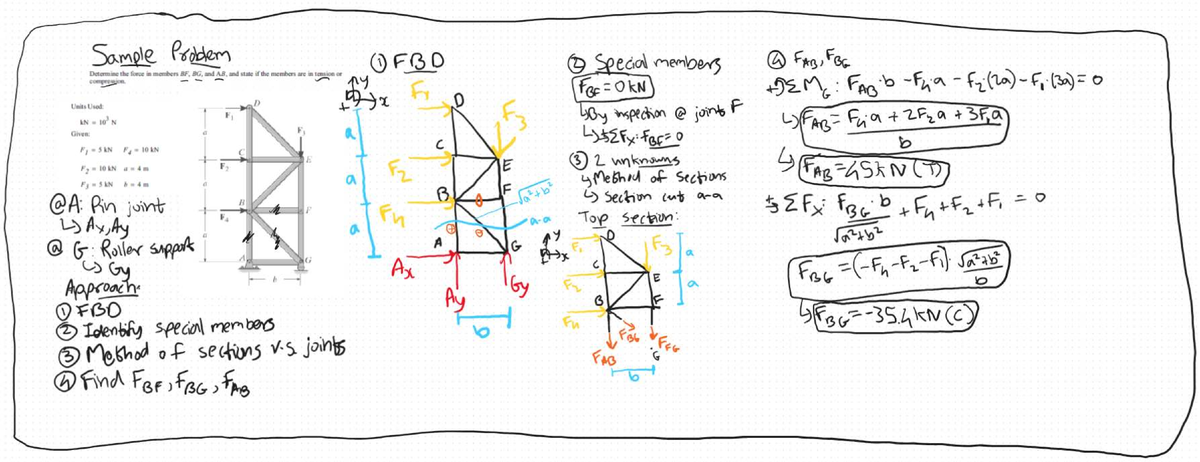 Sample Problem
Determine the force in members BF, BG, and AB, and state if the members are in tension or
compression.
Units Used:
kN = 10³ N
Given:
F₁ = 5 kN F₄ = 10 kN
F₂ = 10 kN a = 4 m
F₃ = 5 kN b = 4 m
@A: Pin joint
↳ Ax, Ay
@ G: Roller support
↳ Gy
Approach:
① FBD
② Identify special members
③ Method of sections v.s. joints
④ Find FBF, FBG, FAB
F₁
D
F₃
C
E
F₂
B
F
F₄
A
G
a
a
a
b
① FBD
y
x
+
F₁
D
F₃
a
C
F₂
E
a
B
F
√a²+b²
F₄
a-a
a
A
G
Ax
Ay
Gy
b
② Special members
FBF = 0 kN
↳ By inspection @ joint F
↳ ΣFx: FBF = 0
③ 2 unknowns
↳ Method of Sections
↳ Section cut a-a
Top section:
y
x
F₁
D
F₃
a
C
F₂
E
a
B
F
F₄
FAB
FBG
FFG
G
b
④ FAB, FBG
+ΣMG: FAB·b - F₄·a - F₂·(2a) - F₁·(3a) = 0
↳ FAB = F₄·a + 2F₂a + 3F₁a
b
↳ FAB = 45 kN (T)
ΣFx: FBG·b + F₄ + F₂ + F₁ = 0
√a²+b²
FBG = (-F₄ - F₂ - F₁)·√a²+b²
b
↳ FBG = -35.4 kN (C)